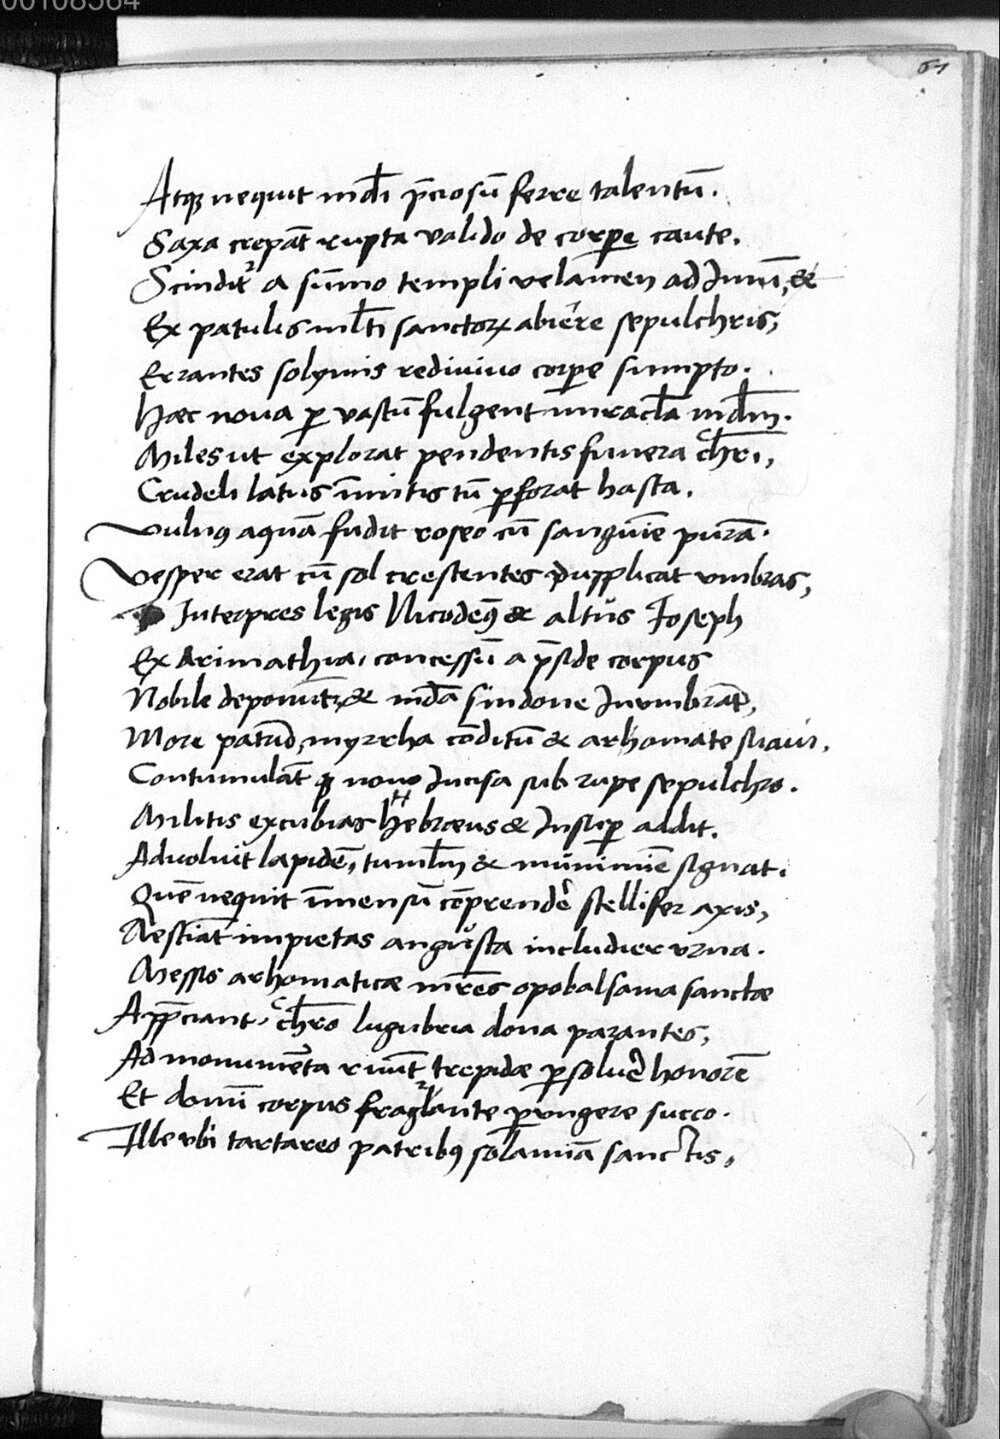 00108564
61
Atqȝ nequit mūdi p̄ciosū ferre talentū.
Saxa crepāt rupta valido de corpe caute.
Scindit᷑ a sūmo templi velamen ad Imū, &
Ex patulis ml̄ti sanctoꝝ abiēre sepulchris,
Errantes solymis redivivo corpe sumpto.
Haec nova p vastū fulgent miracl̄a mūdm.
Miles ut explorat pendentis funera chr̄i,
Crudeli latus īmitis tū pforat hasta.
Vulnꝰ aquā fudit roseo cū sanguīe purā.
Vesper erat cū sol crescentes dupplicat umbras,
Interpres legis Nicodeꝰ & altus Ioseph
Ex Arimathia, concessū a p̄side corpus
Nobile deponūt, & mūda sindone Inumbrāt,
More patrū, myrrha cōditū & arhomate suavi,
Contumulāt qȝ novo Incisa sub rupe sepulchro.
Militis excubias Hebraeus & Insup addit.
Advoluit lapidē, tuml̄m & munimīe signat.
Quē nequit īmensū cōprendē stellifer axis,
Aestiāt impietas angusta includier urna.
Messis arhomaticae mr̄es opobalsama sanctae
App̄ciant, chr̄o lugubria dona parantes,
Ad monumēta ruūt trepidae psolvē honorē
Et domī corpus fraglante pungere succo.
Ille ubi tartareo patribꝰ solamīa sanctis,